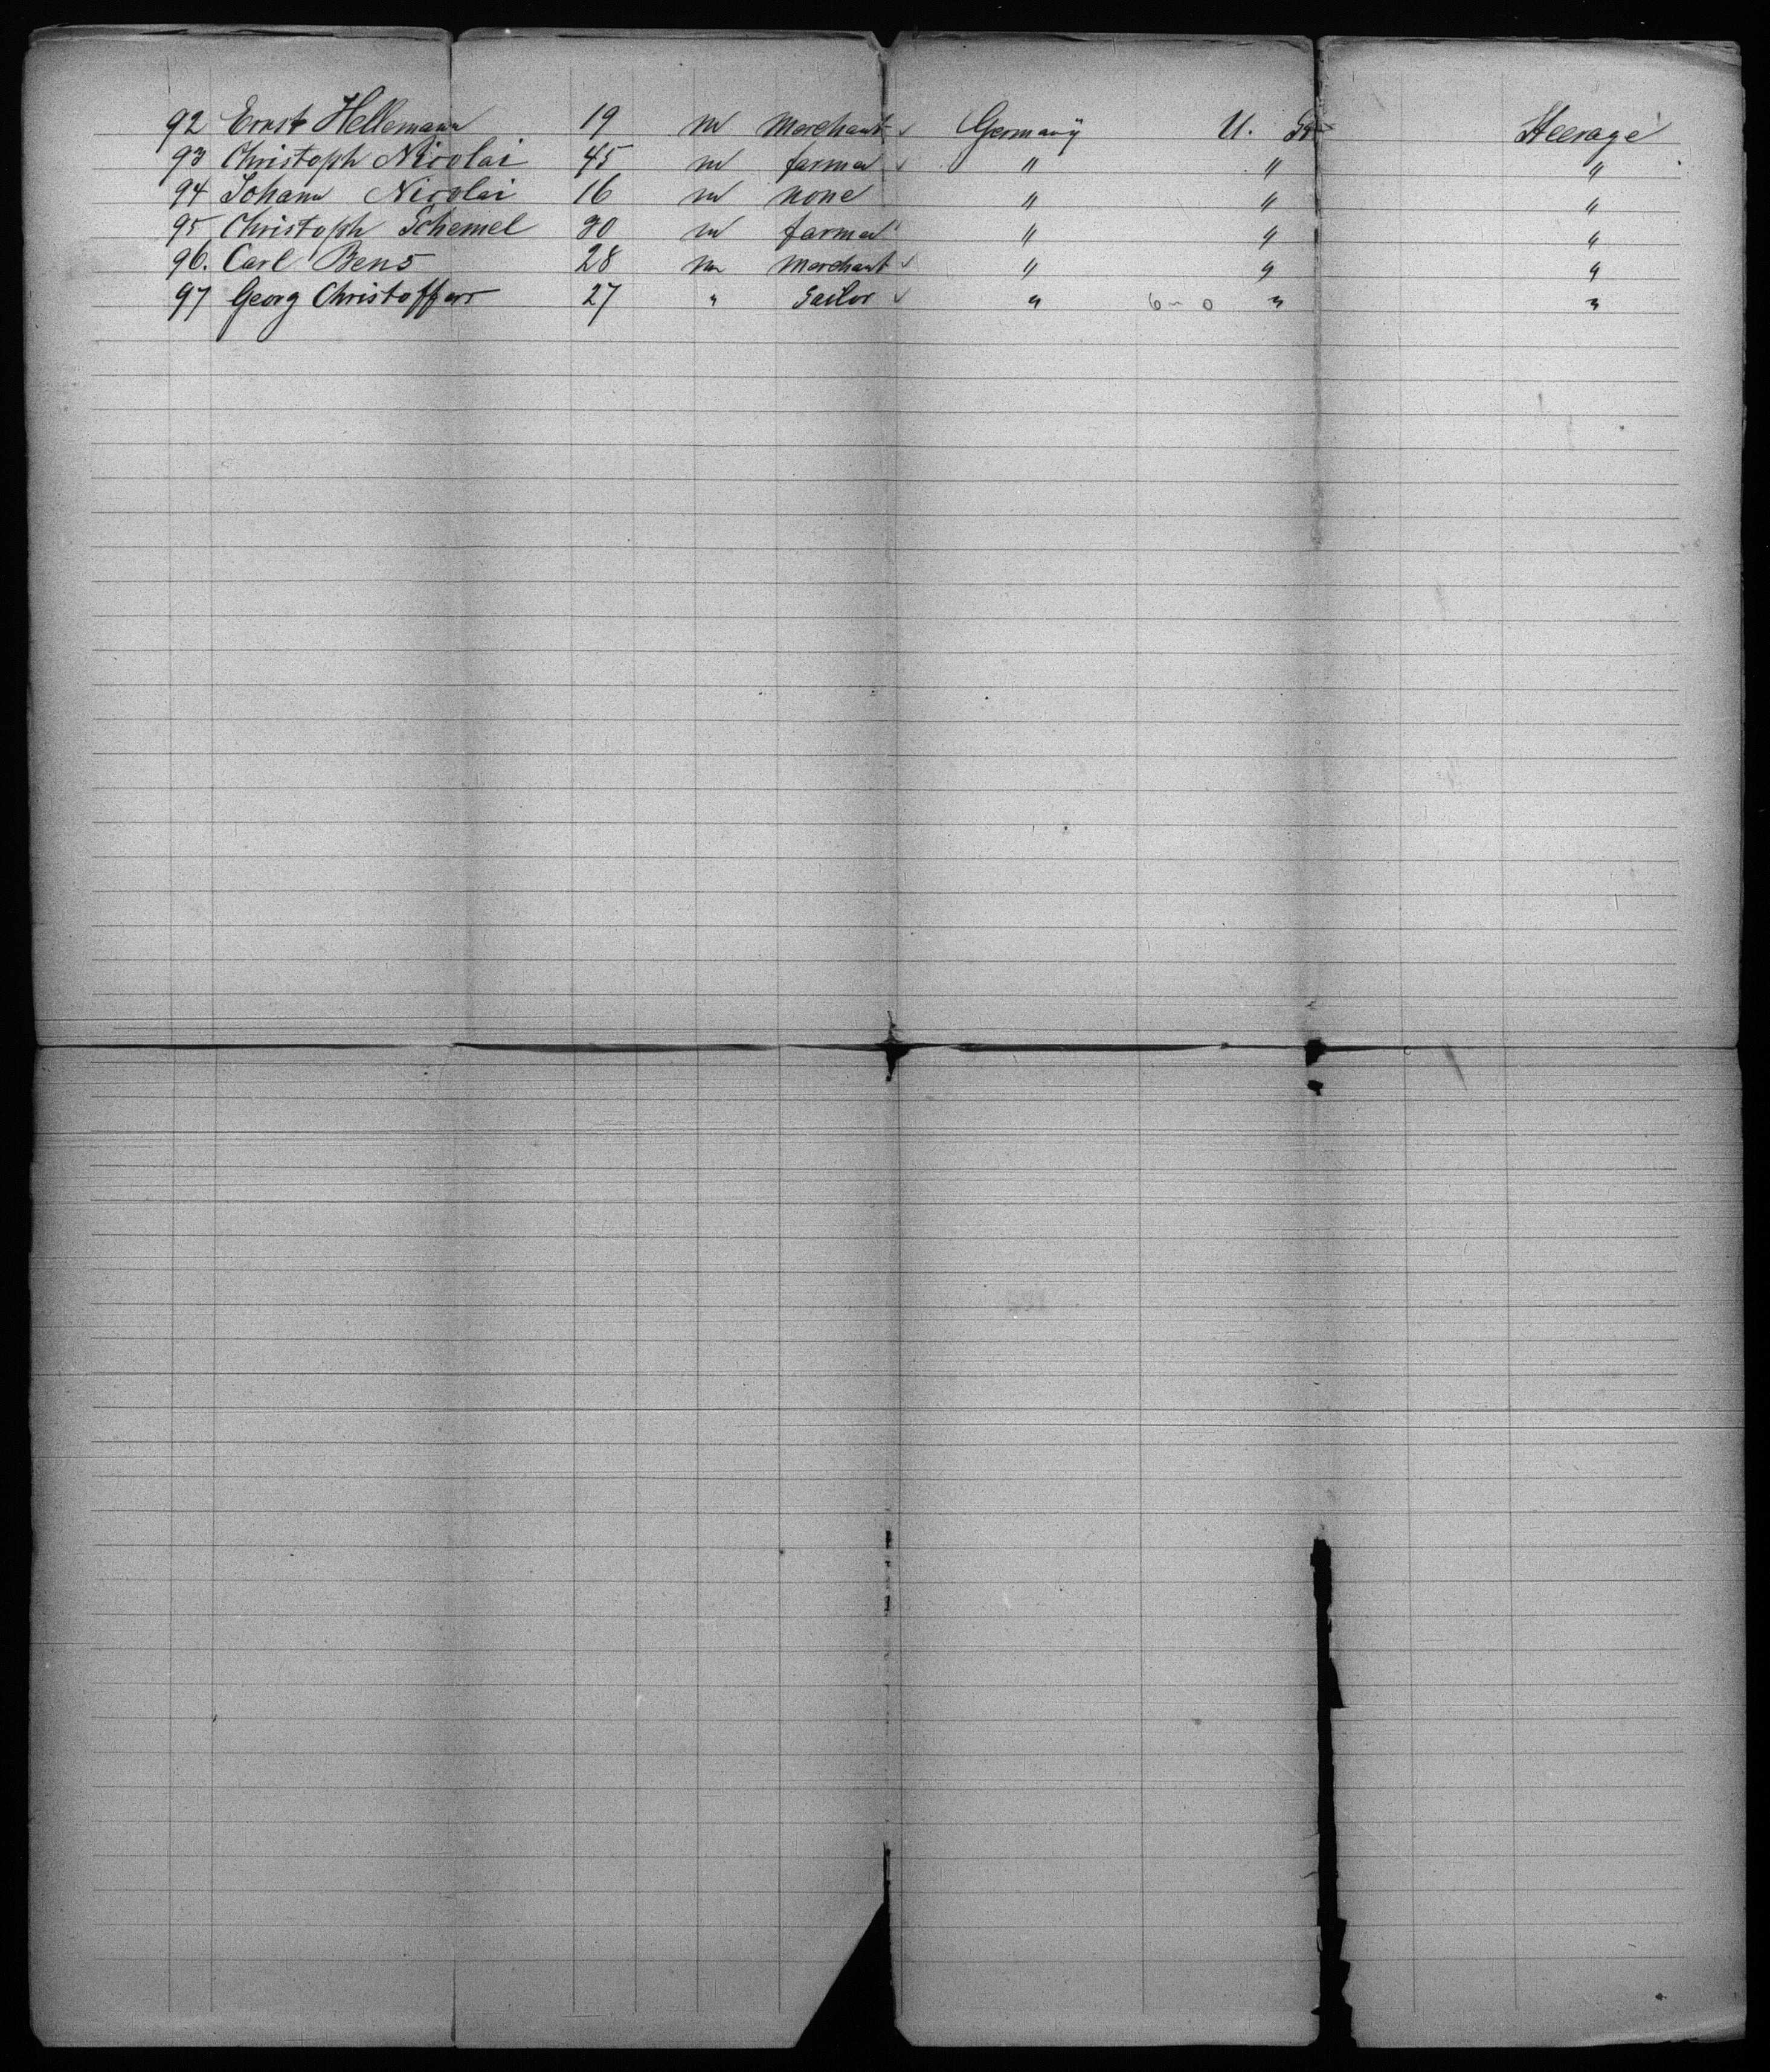 92 Ernst Hellemann 19 m Merchant ✓ Germany U. St. Steerage
93 Christoph Nicolai 45 m farmer ✓ " " "
94 Johann Nicolai 16 m none " " "
95 Christoph Schemel 30 m farmer " " "
96. Carl Bens 28 m Merchant ✓ " " "
97 Georg 27 " Sailor ✓ " 6 - 0 " "